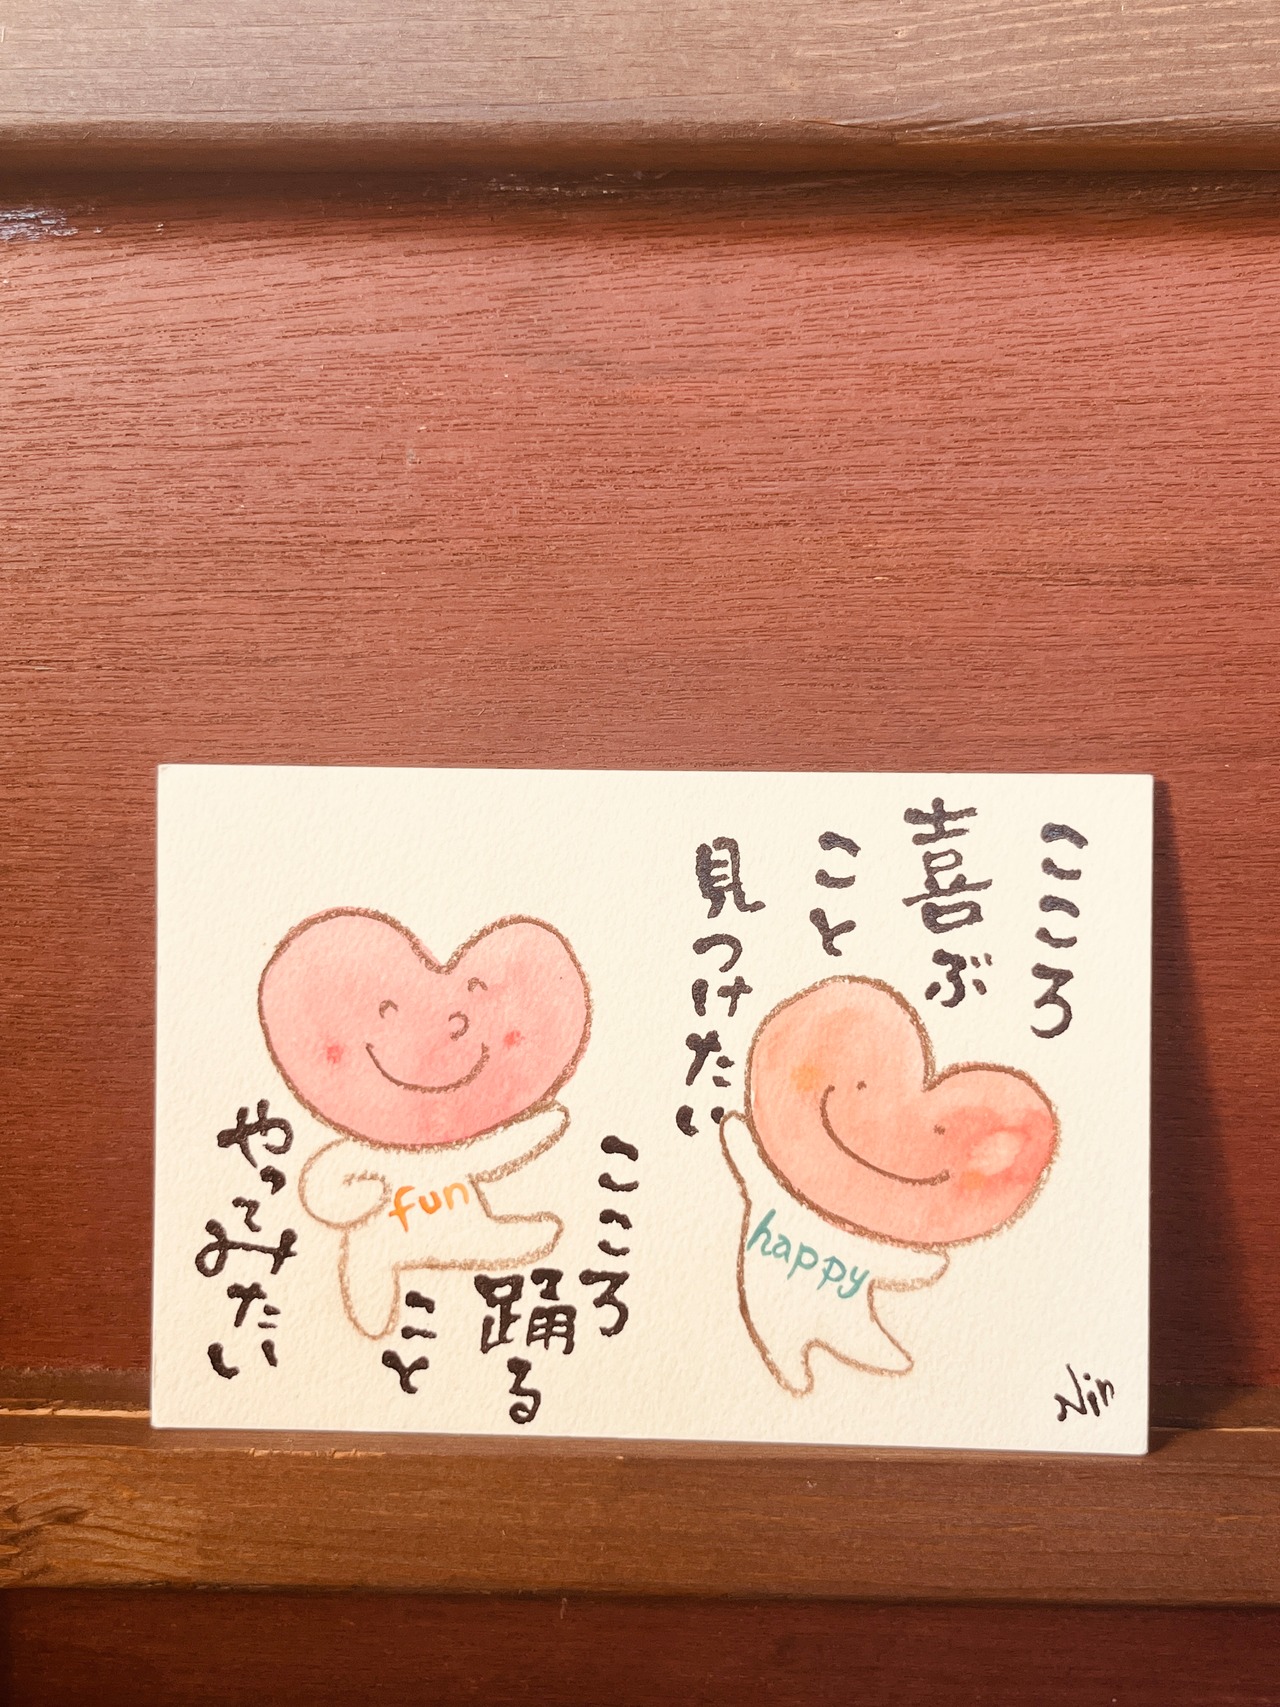 こころ
喜ぶ
こと
見つけたい
happy
こころ
踊る
こと
やってみたい
fun